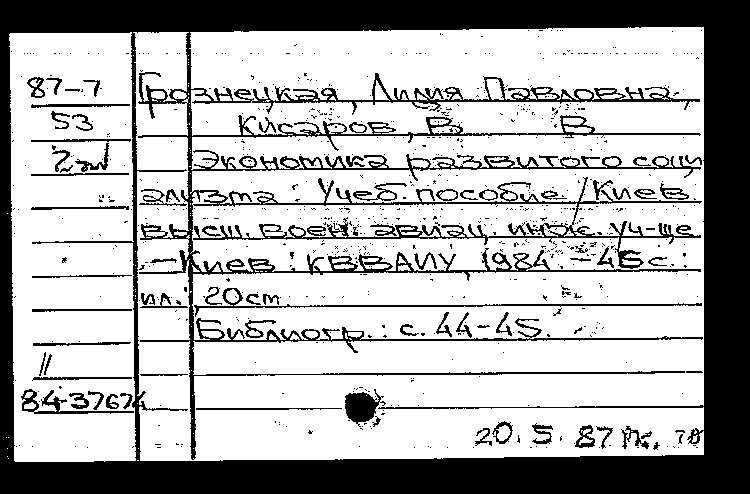 87-7 Грознецкая, Лилия Павловна,
53 Кисаров, В В
2 Экономика развитого соци
ализма : Учеб. пособие / Киев
высш. воен. авиац. инж. уч-ще
– Киев : КВВАИУ, 1984. – 45 с. :
ил. ; 20 см
Библиогр.: с. 44-45.
//
84-37674
20. 5. 87